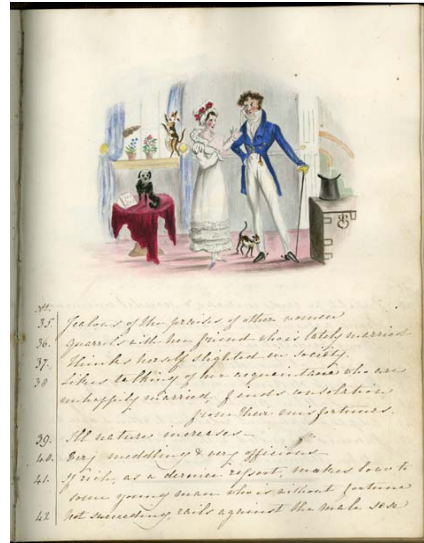 35. Jealous of the praises of other women
36. Quarrels with her friend who is lately married
37. Thinks herself slighted in society.
38 Likes talking of her acquaintance who are
unhappily married, finds consolation
from their misfortunes.
39. Ill nature increases
40. Very meddling & very officious
41. If rich, as a dernier resort, makes love to
some young man who is without fortune
42 Not succeeding, rails against the male sex